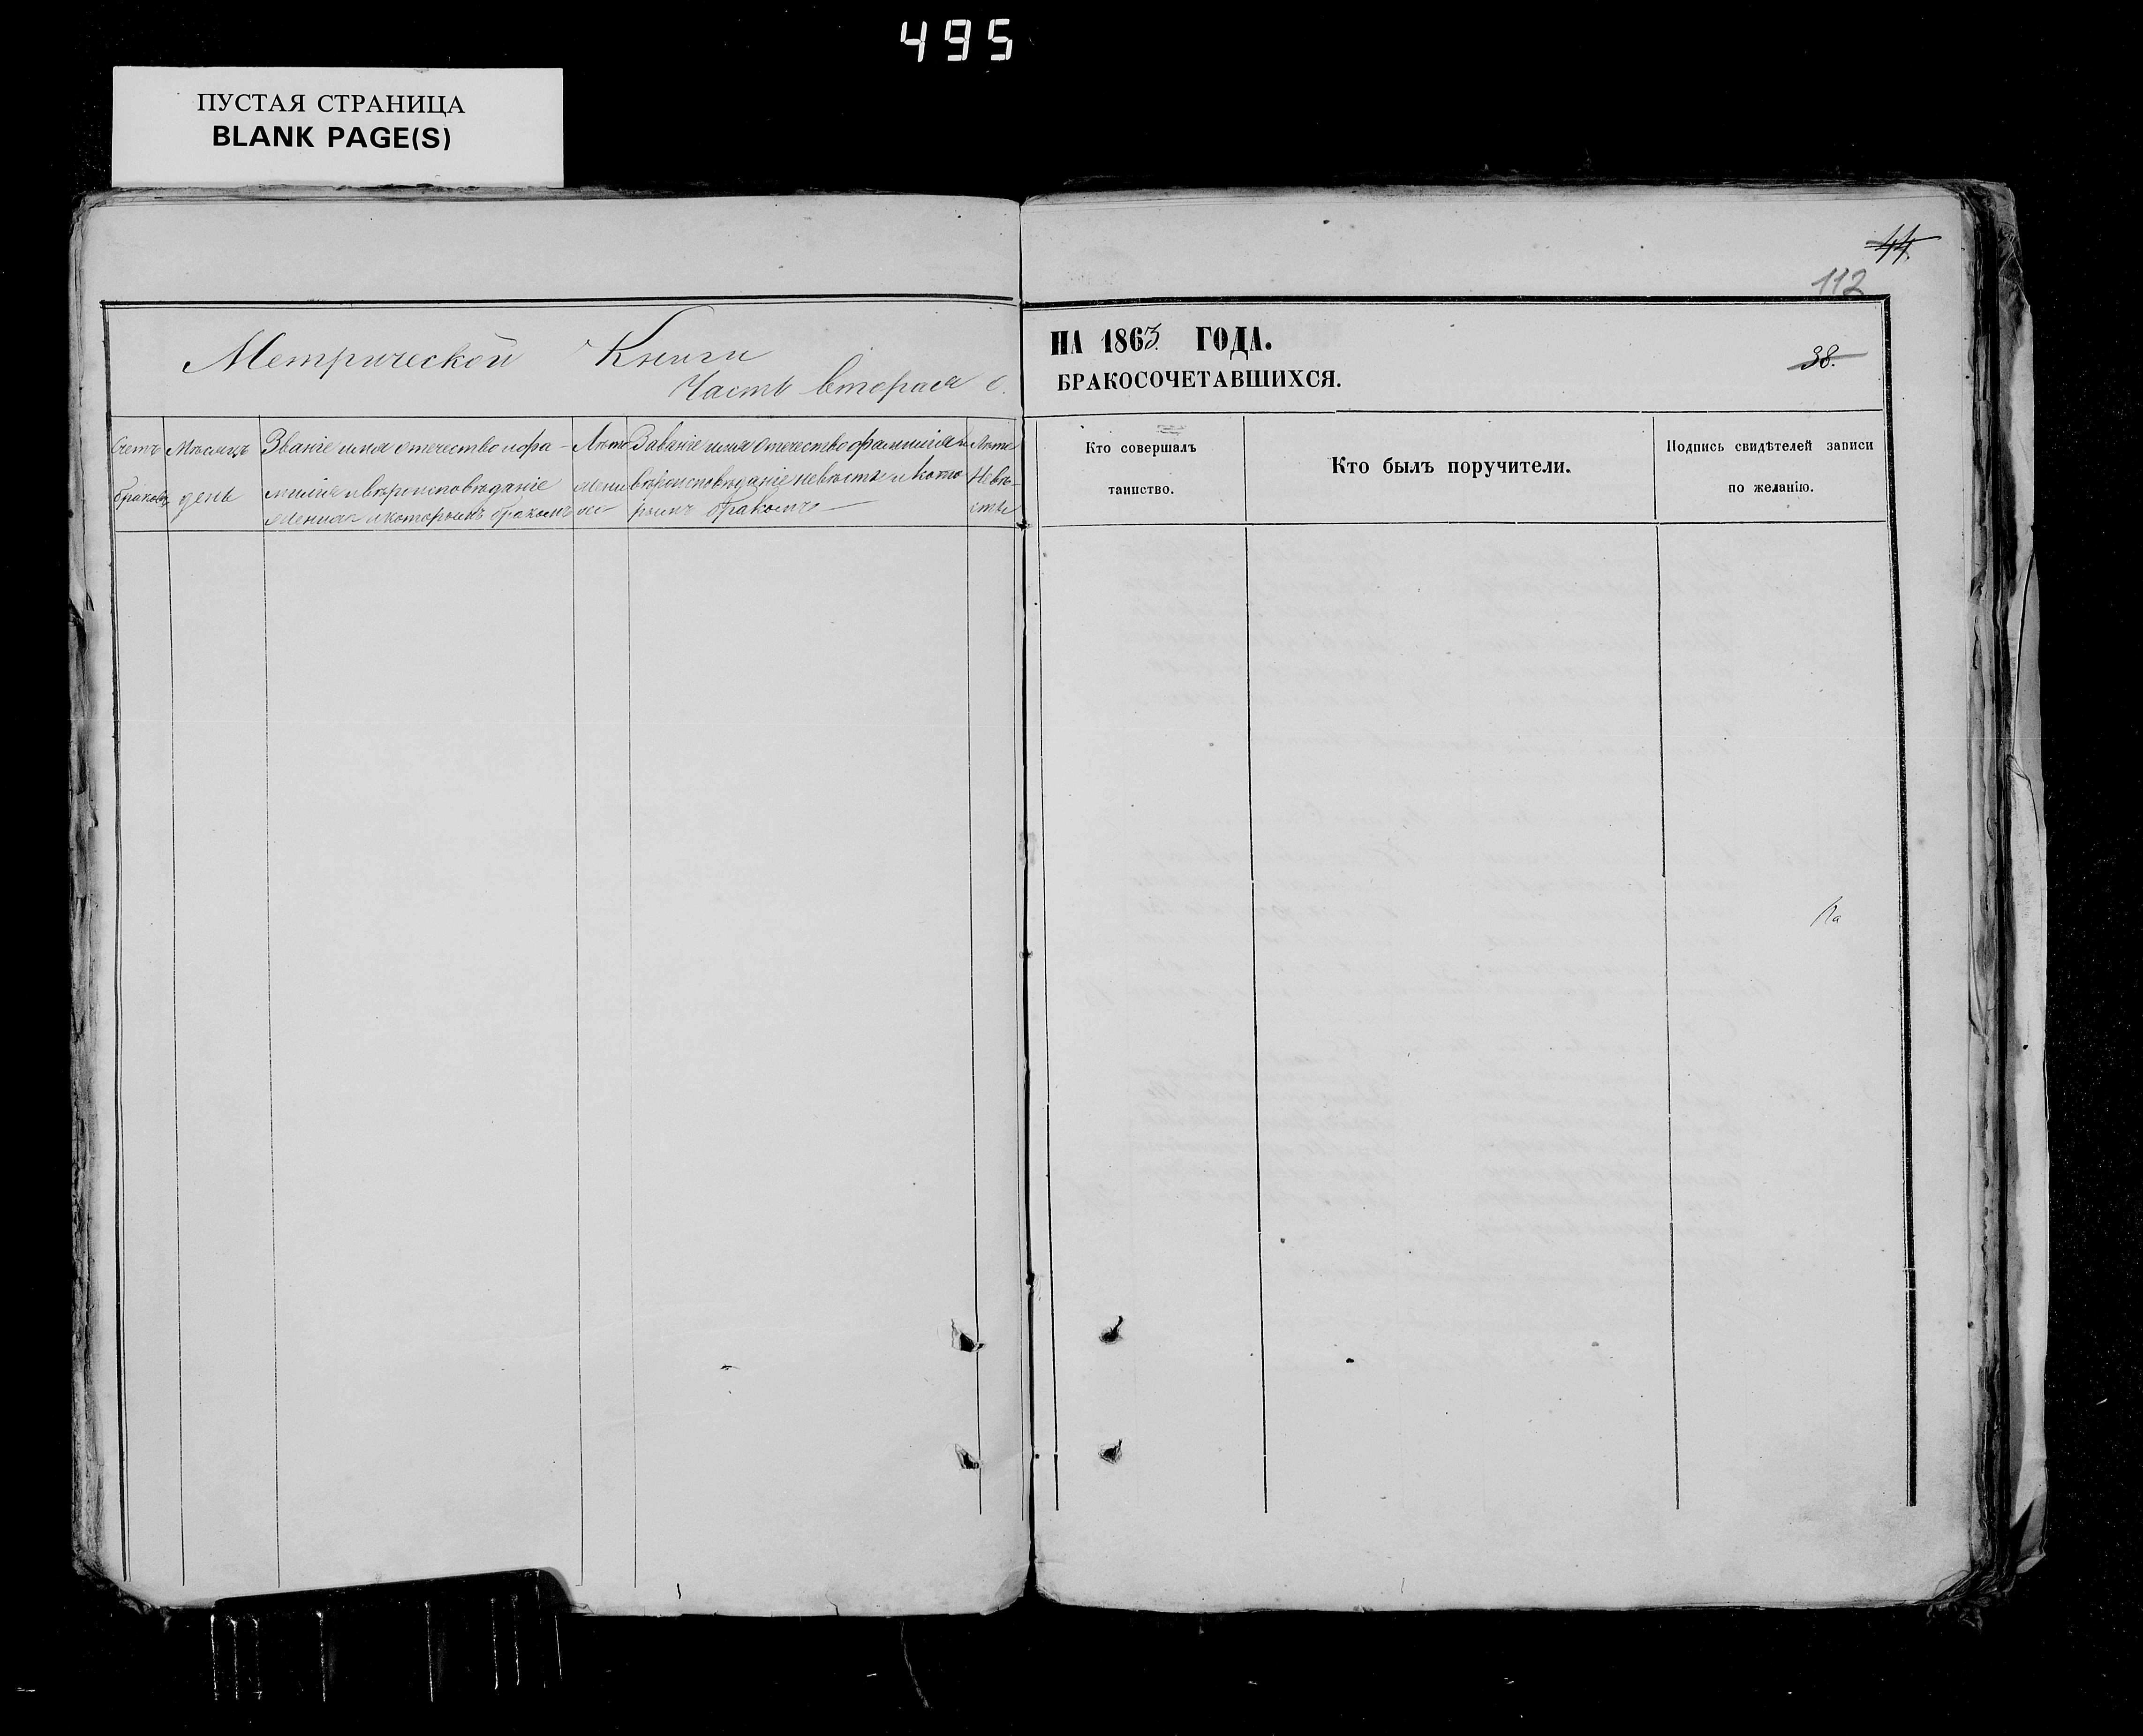 495
ПУСТАЯ СТРАНИЦА
BLANK PAGE(S)
44
112
Метрической Книги
Часть вторая о
НА 1863 ГОДА.
38.
БРАКОСОЧЕТАВШИХСЯ.
Счетъ
браковъ
Мѣсяцъ
день
Званіе имя отечество и фа-
милія и вѣроисповѣданіе
жениха и которымъ бракомъ
Лѣта
жени
ха
Званіе имя отечество фамилія и
вѣроисповѣданіе невѣсты и кото
рымъ бракомъ
Лѣта
Невѣ-
сты
Кто совершалъ
таинство.
Кто былъ поручители.
Подпись свидѣтелей записи
по желанію.